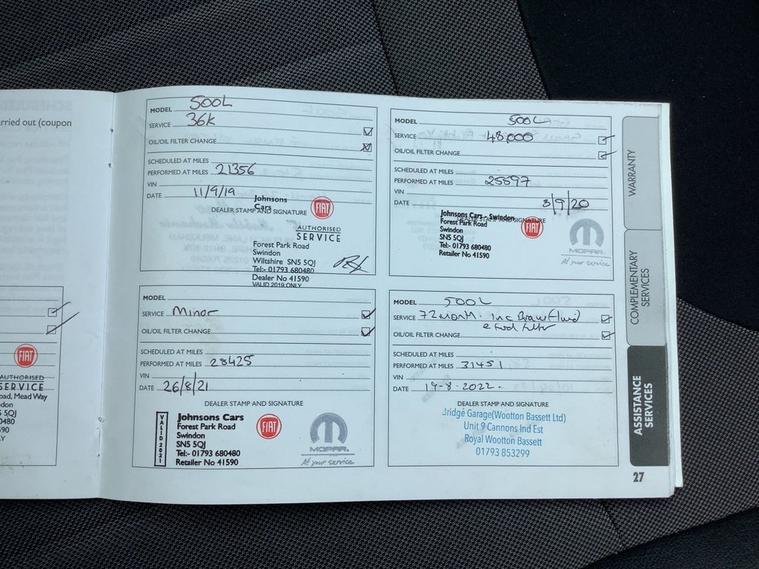 rried out (coupon
MODEL 500L
SERVICE 36k
OIL/OIL FILTER CHANGE
SCHEDULED AT MILES
PERFORMED AT MILES 21356
VIN
DATE 11/9/19
Johnsons
Cars
DEALER STAMP AND SIGNATURE
FIAT
AUTHORISED
SERVICE
Forest Park Road
Swindon
Wiltshire SN5 5QJ
Tel:- 01793 680480
Dealer No 41590
VALID 2019 ONLY
MODEL 500L
SERVICE 48,000
OIL/OIL FILTER CHANGE
SCHEDULED AT MILES
PERFORMED AT MILES 25597
VIN
DATE 3/9/20
DEALER STAMP AND SIGNATURE
Johnsons Cars - Swindon
Forest Park Road
Swindon
SN5 5QJ
Tel:- 01793 680480
Retailer No 41590
FIAT
MOPAR
At your service
MODEL
SERVICE Minor
OIL/OIL FILTER CHANGE
SCHEDULED AT MILES
PERFORMED AT MILES 28425
VIN
DATE 26/8/21
DEALER STAMP AND SIGNATURE
VALID 2021
Johnsons Cars
Forest Park Road
Swindon
SN5 5QJ
Tel:- 01793 680480
Retailer No 41590
FIAT
MOPAR
At your service
MODEL 500L
SERVICE 72 Month. Inc Brake Fluid
OIL/OIL FILTER CHANGE & Fuel filter
SCHEDULED AT MILES
PERFORMED AT MILES 31451
VIN
DATE 19-8-2022.
DEALER STAMP AND SIGNATURE
Bridge Garage(Wootton Bassett Ltd)
Unit 9 Cannons Ind Est
Royal Wootton Bassett
01793 853299
WARRANTY
COMPLEMENTARY
SERVICES
ASSISTANCE
SERVICES
27
FIAT
AUTHORISED
SERVICE
oad, Mead Way
don
5QJ
0480
590
LY